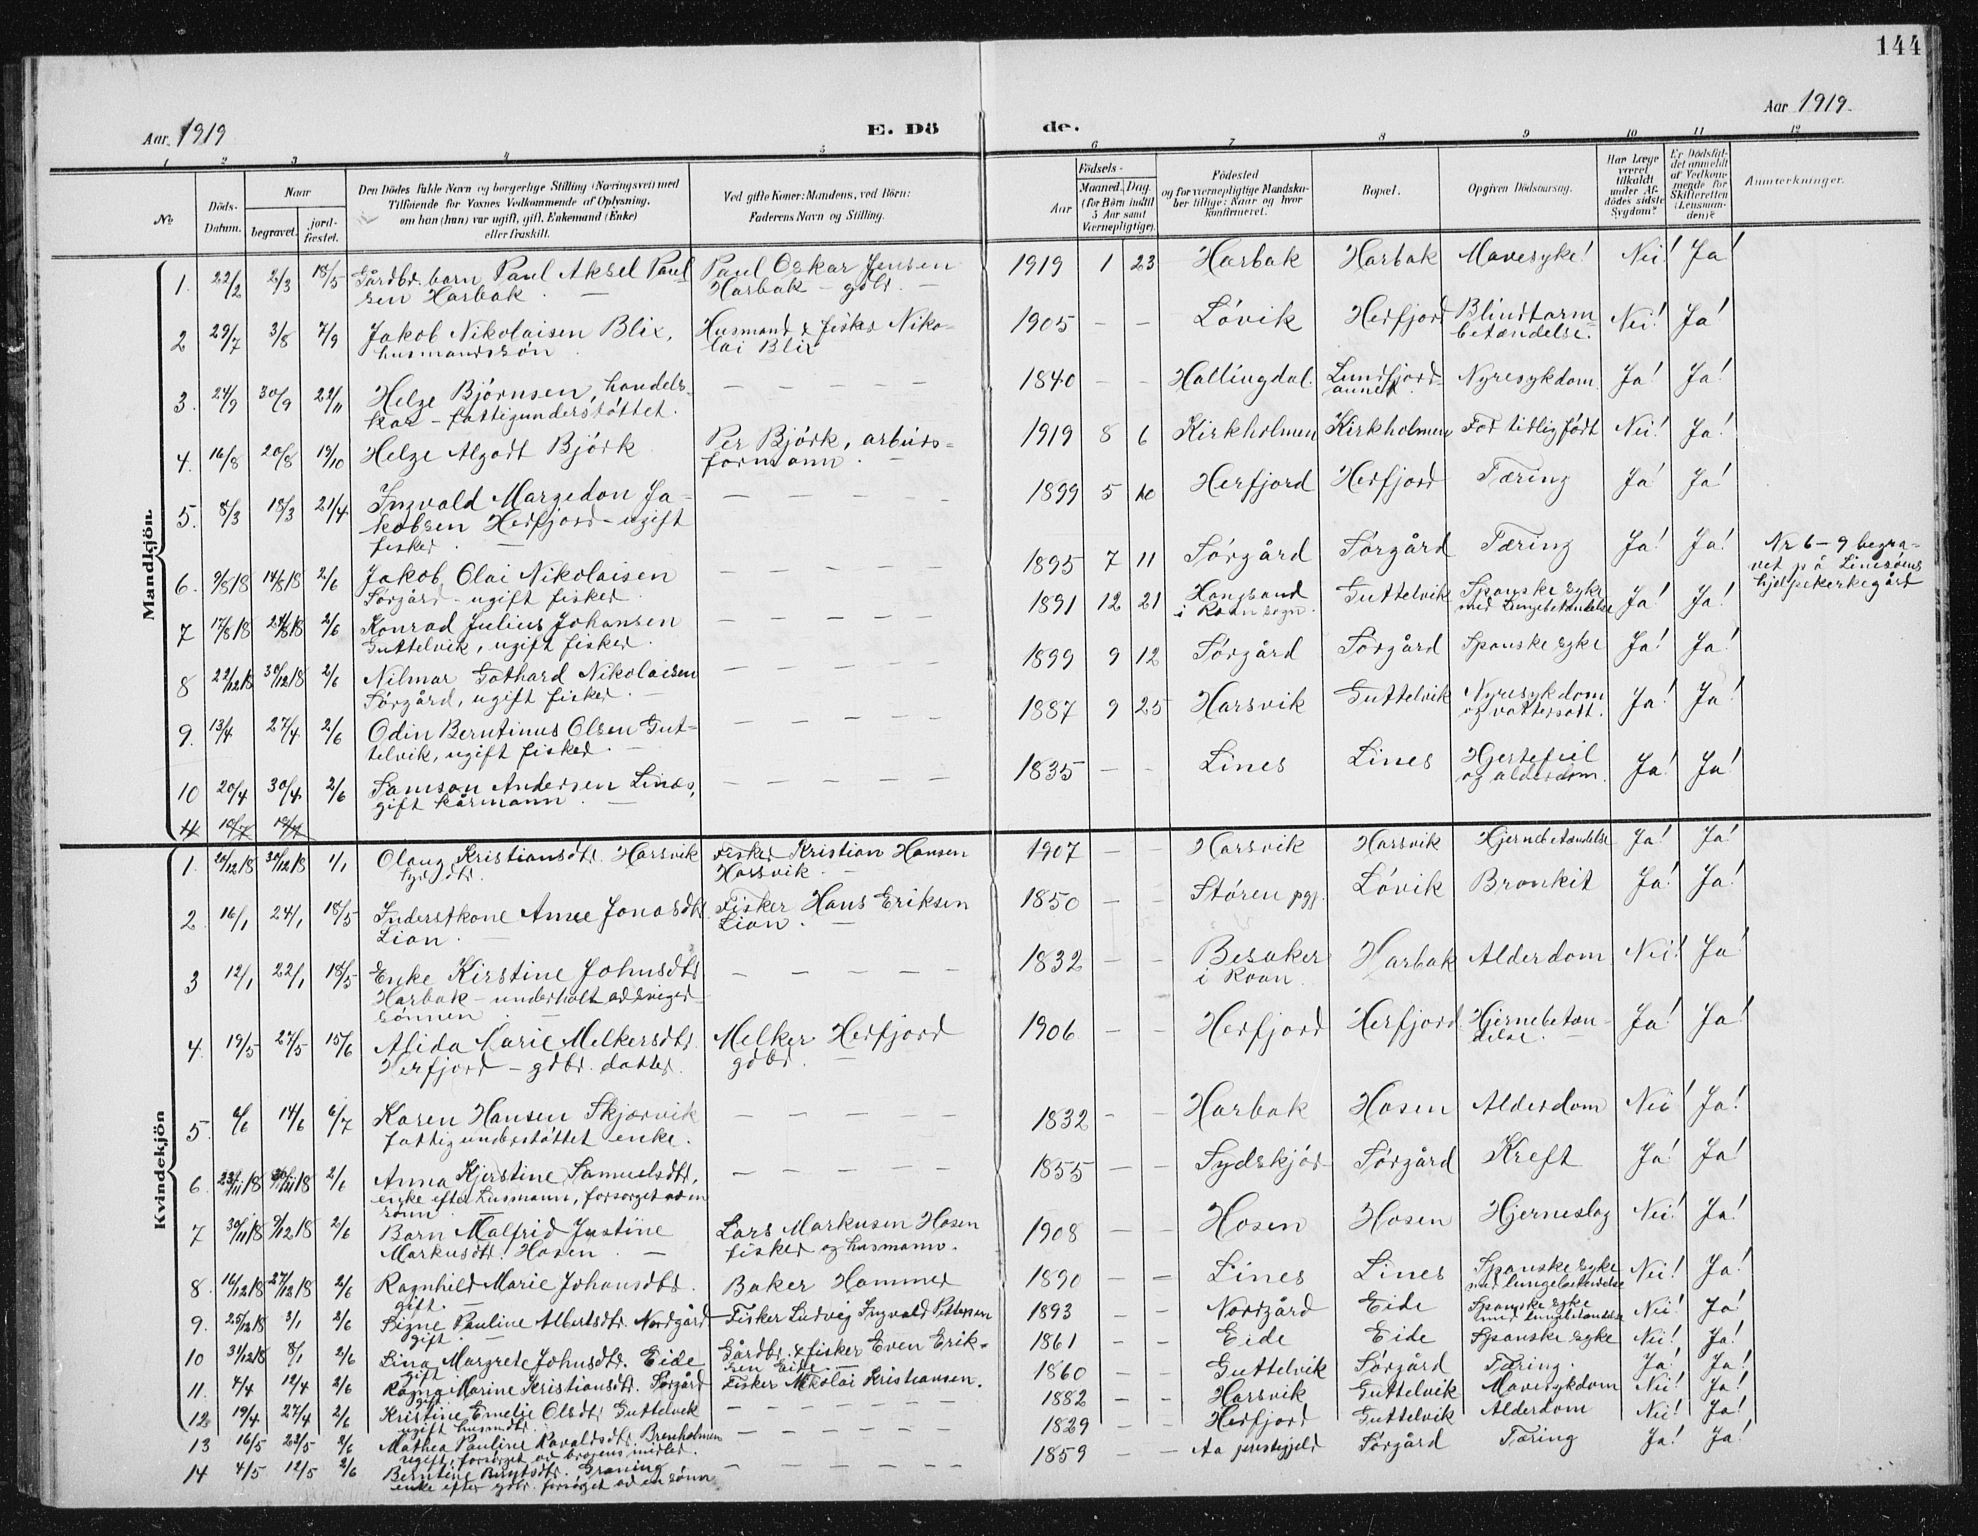 144
Aar 1919
E. Dö
de.
Aar 1919.
1 2 3 4 5 6 7 8 9 10 11 12
No
Döds-Datum.
Naar
begravet.
jord-fæstet.
Den Dödes fulde Navn og borgerlige Stilling (Næringsvei) med
Tilføiende for Voxnes Vedkommende af Oplysning,
om han (hun) var ugift, gift, Enkemand (Enke)
eller fraskilt.
Ved gifte Koner: Mandens, ved Börn:
Faderens Navn og Stilling.
Födsels-
Aar
Maaned. Dag.
(for Börn indtil
5 Aar samt
Værnepligtige).
Födested
og for værnepligtige Mandska-
ber tillige: Naar og hvor
konfirmeret.
Bopæl.
Opgiven Dödsaarsag.
Har Læge
været
tilkaldt
under Af-
dödes sidste
Sygdom?
Er Dödsfal-
det anmeldt
af Vedkom-
mende for
Skifteretten
(Lensman-
den)?
Anmærkninger.
Mandkjön.
1. 22/2 2/3 18/5 Gårdbr. barn Paul Aksel Paul- Paul Oskar Jensen 1919 1 23 Harbak Harbak Mavesyke! Nei! Ja!
sen Harbak. — Harbak - gdbr. —
2 29/7 3/8 7/9 Jakob Nikolaisen Blix, Husmand & fisker Niko- 1905 — — Lövik Herfjord Blindtarm- Nei! Ja!
husmandssön. lai Blix betændelse.
3. 24/9 30/9 22/11 Helge Björnsen, handels- — — — — — 1840 — — Hallingdal. Lundfjord- Nyresykdom. Ja! Ja!
kar - fattigunderstöttet. annet.
4. 16/8 20/8 19/10 Helge Algodt Björk Per Björk, arbeids- 1919 8 6 Kirkholmen Kirkholmen For tidlig födt Nei! Ja!
formann. —
5. 8/3 18/3 21/4 Ingvald Margedon Ja- — — — — — 1899 5 10 Herfjord Herfjord Tæring Ja! Ja!
kobsen Herfjord - ugift
fisker. —
6. 9/8 18 14/8 18 2/6 Jakob Olai Nikolaisen — — — — — 1895 7 11 Sörgård Sörgård Tæring Ja! Ja! Nr 6-9 begra-
Sörgård - ugift fisker. vet på Linesöens
hjelpekirkegård
7 17/8 18 24/8 18 2/6 Konrad Julius Johansen — — — — — 1891 12 21 Hongsand Guttelvik Spanske syke Ja! Ja!
Guttelvik, ugift fisker. i Roan sogn. med Lungebetændelse
8 22/12 18 30/12 18 2/6 Nilmar Gothard Nikolaisen — — — — — 1899 9 12 Sörgård Sörgård Spanske syke Ja! Ja!
Sörgård, ugift fisker. —
9. 13/4 27/4 2/6 Odin Berntinus Olsen Gut- — — — — — 1887 9 25 Harsvik Guttelvik Nyresykdom Ja! Ja!
telvik, ugift fisker. — og vattersott.
10 20/4 30/4 2/6 Samson Andersen Lines, — — — — — 1835 — — Lines Lines Hjertefeil Ja! Ja!
gift kårmann. — og alderdom.
11 10/7 19/7
Kvindekjön
1. 20/12 18 30/12 18 1/1 Olaug Kristiansdtr. Harsvik Fisker Kristian Hansen 1907 — — Harsvik Harsvik Hjernebetændelse Ja! Ja!
Harsvik. —
2 16/1 24/1 18/5 Inderstkone Anne Jonasdtr Fisker Hans Eriksen 1850 — — Stören pgj. Lövik Bronkit Ja! Ja!
Lian. — Lian. —
3 12/1 22/1 18/5 Enke Kirstine Johnsdtr — — — — — 1832 — — Besaker Harbak Alderdom Nei! Ja!
Harbak - underholt ad sviger- i Roan.
sönnen. —
4. 19/5 27/5 15/6 Alida Marie Melkersdtr. Melker Herfjord 1906 — — Herfjord Herfjord Hjernebetæn- Ja! Ja!
Herfjord - gdbr. datter. gdbr. — delse. —
5. 6/6 14/6 6/7 Karen Hansen Skjærvik — — — — — 1832 — — Harbak Hosen Alderdom Nei! Ja!
fattigunderstöttet enke.
6. 23/11 18 30/11 18 2/6 Anna Kjerstine Samuelsdtr, — — — — — 1855 — — Sydskjör Sörgård Kreft Ja! Ja!
enke efter husmann, forsörget ad en
sönn. —
7 30/11 18 9/12 18 2/6 Barn Malfrid Justine Lars Markusen Hosen 1908 — — Hosen Hosen Hjerneslag Nei! Ja!
Markusdtr. Hosen. — fisker og husmann.
8. 16/12 18 27/12 18 2/6 Ragnhild Marie Johansdtr. Baker Hammer 1890 — — Lines Lines Spanske syke Nei! Ja!
gift. — med lungebetændelse
9. 25/12 18 3/1 2/6 Signe Pauline Albertsdtr. Nordgård Fisker Ludvig Ingvald Pettersen 1893 — Nordgård Eide Spanske syke Nei! Ja!
gift. — med lungebetændelse
10 31/12 18 8/1 2/6 Lina Margrete Johnsdtr. Eide Gårdbr. & fisker Even Erik- 1861 — Eide Eide Spanske syke Nei! Ja!
gift. sen Eide. —
11. 4/4 12/4 2/6 Ragna Marine Kristiansdtr. Sörgård Fisker Nikolai Kristiansen. 1860 — Guttelvik Sörgård Tæring. Ja! Ja!
gift.
12 19/4 27/4 2/6 Kristine Emelie Olsdtr Guttelvik — — — — — 1882 — Harsvik Guttelvik Mavesykdom Nei! Ja!
ugift husmdtr.
13 16/5 23/5 2/6 Mathea Pauline Brenholmen — — — — — 1829 — Herfjord Guttelvik Alderdom Nei! Ja!
ugift, forsörget ad brorens midler.
14 4/5 12/5 2/6 Berntine Berntsdtr. Graning — — — — — 1859 — — Aa prestegjeld Sörgård Tæring Ja! Ja!
enke efter gdbr. forsörget ad en sönn